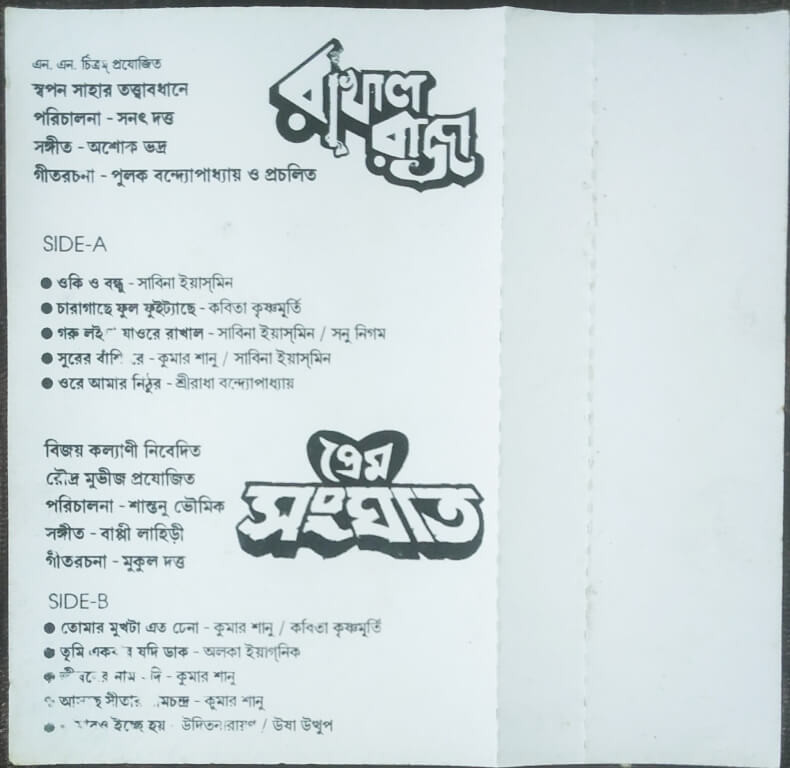 এন. এন. চিত্রম্ প্রযোজিত
স্বপন সাহার তত্ত্বাবধানে
পরিচালনা - সনৎ দত্ত
সঙ্গীত - অশোক ভদ্র
গীতরচনা - পুলক বন্দ্যোপাধ্যায় ও প্রচলিত
রাখাল
রাজা
SIDE-A
● ওকি ও বন্ধু - সাবিনা ইয়াস্‌মিন
● চারাগাছে ফুল ফুইট্যাছে - কবিতা কৃষ্ণমূর্তি
● গরু যাওরে রাখাল - সাবিনা ইয়াস্‌মিন / সনু নিগম
● সুরের - কুমার শানু / সাবিনা ইয়াস্‌মিন
● ওরে আমার নিঠুর - শ্রীরাধা বন্দ্যোপাধ্যায়
বিজয় কল্যাণী নিবেদিত
রৌদ্র মুভীজ প্রযোজিত
পরিচালনা - শান্তনু ভৌমিক
সঙ্গীত - বাপ্পী লাহিড়ী
গীতরচনা - মুকুল দত্ত
প্রেম
সংঘাত
SIDE-B
● তোমার মুখটা এত চেনা - কুমার শানু / কবিতা কৃষ্ণমূর্তি
● তুমি যদি ডাক - অলকা ইয়াগ্‌নিক
নাম - কুমার শানু
- কুমার শানু
● ইচ্ছে হয় - উদিতনারায়ণ / উষা উত্থুপ